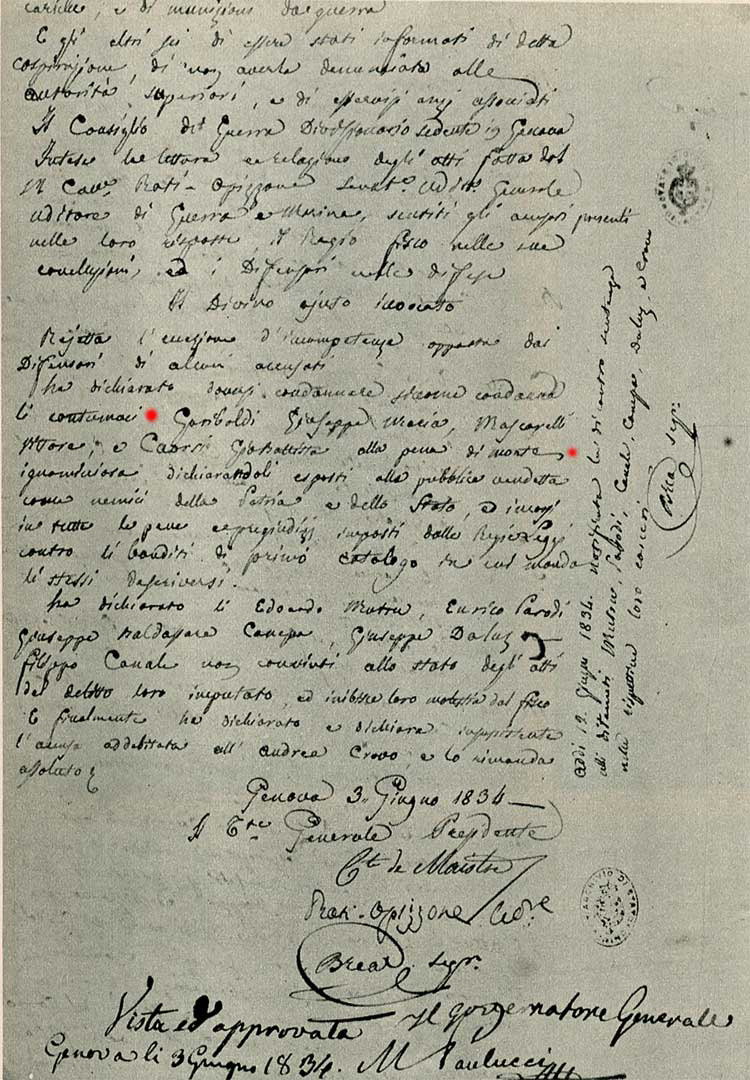 cariche, e di munizioni da guerra
E gli altri sei di essere stati informati di detta
cospirazione, di non averla denunciata alle
autorità superiori, e di essersi anzi associati
Il Consiglio di Guerra Divisionario sedente in Genova
Intesa la lettura e relazione degli atti fatta dal
Rati-Opizzone Generale
Uditore di Guerra e Marina, sentiti gli accusati presenti
nelle loro risposte, il Regio fisco nelle sue
conclusioni, ed i Difensori nelle difese
Il Divino ajuto invocato
Rejetta l'eccezione d'incompetenza opposta dai
Difensori di alcuni accusati
ha dichiarato doversi condannare siccome condanna
li contumaci Garibaldi Giuseppe Maria, Mascarelli
Vittore, e Caorsi Gio Battista alla pena di morte
ignominiosa dichiarandoli esposti alla pubblica vendetta
come nemici della Patria e dello Stato, e incorsi
in tutte le pene e pregiudizj imposti dalle Regie Leggi
contro li banditi di primo catalogo in cui manda
li stessi descriversi.
ha dichiarato li Edoardo Mutru, Enrico Parodi
Giuseppe Baldassare Canepa, Giuseppe Daluz e
Filippo Canale non convinti allo stato degli atti
del delitto loro imputato, ed inibisce loro molestia dal fisco
E finalmente ha dichiarato e dichiara
l'accusa addebitata all' Andrea Crovo, e lo rimanda
assoluto
Genova 3. Giugno 1834
Il T.te Generale Presidente
C.te de Maistre
Rati-Opizzone
Brea Segr.
Vista ed approvata Il governatore Generale
Genova li 3 Giugno 1834. M Paulucci
Addì 12. Giugno 1834. Notificata la di contro sentenza
alli ditenuti Mutru, Parodi, Canale, Canepa, Daluz, e Crovo
nelle rispettive loro carceri
Brea Segr.